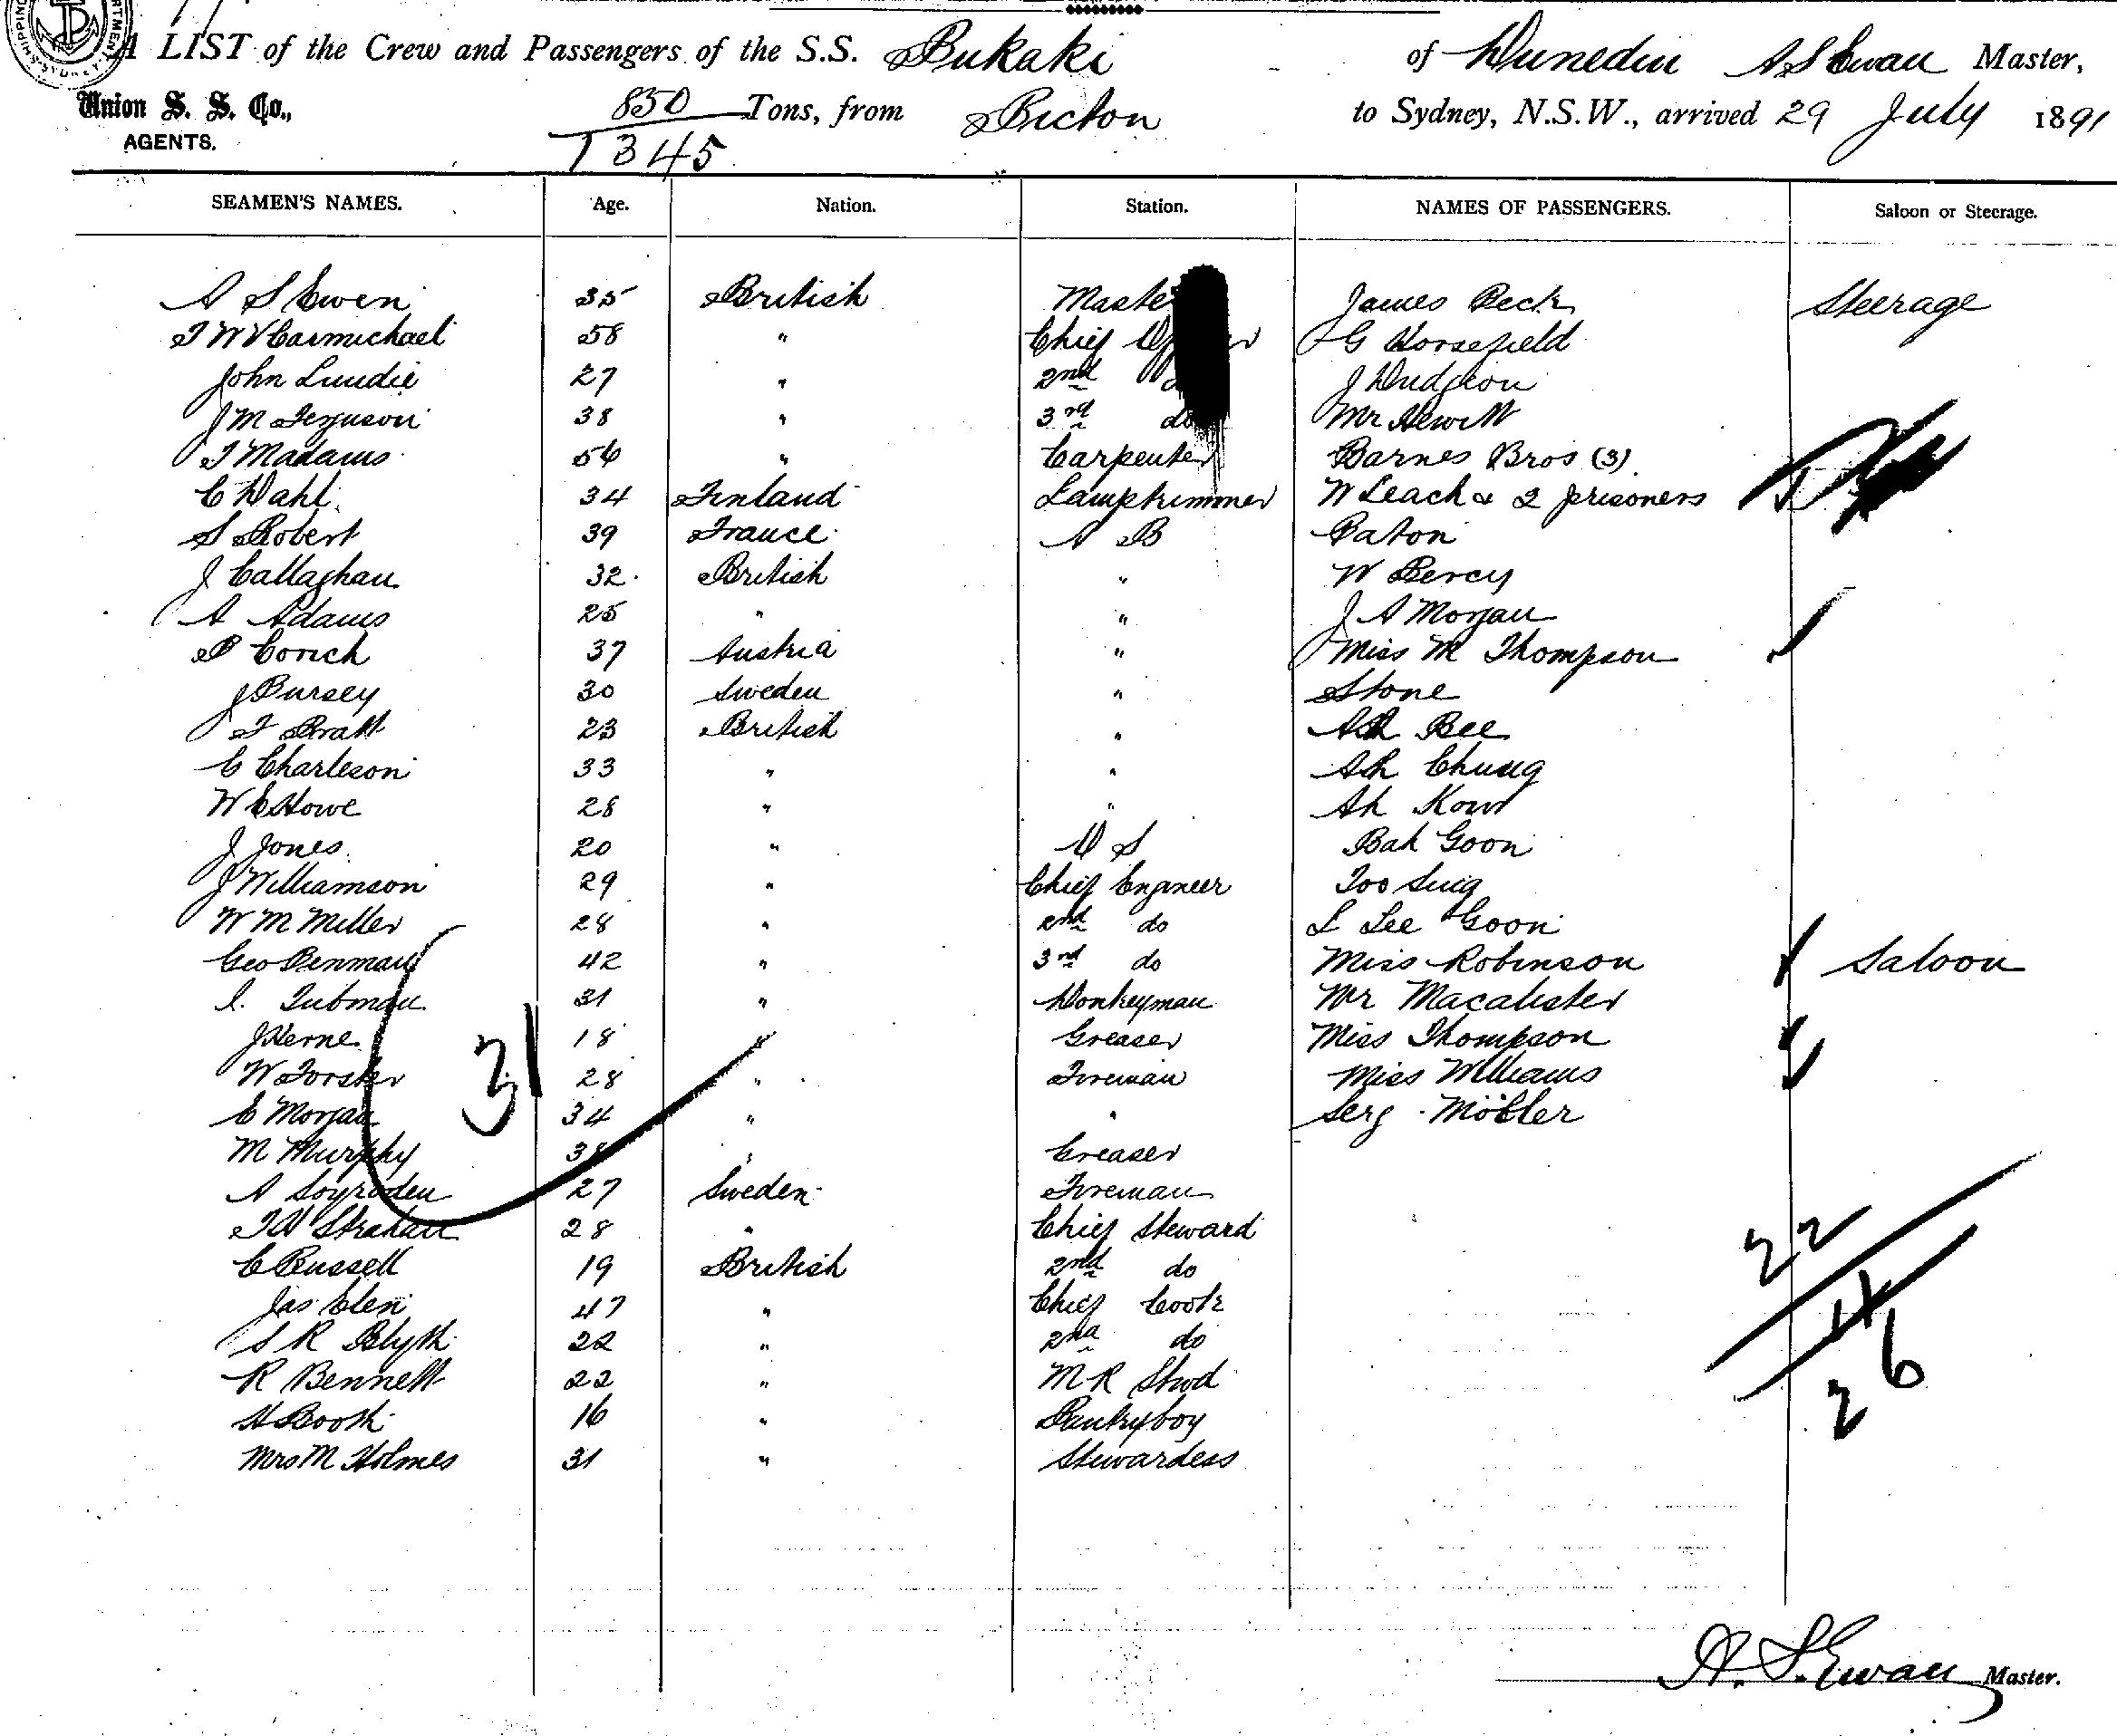 A LIST of the Crew and Passengers of the S.S. Pukaki of Dunedin A S Ewan Master,
Union S. S. Co., 850 Tons, from Picton to Sydney, N.S.W., arrived 29 July 1891
AGENTS. 1345
SEAMEN'S NAMES. Age. Nation. Station. NAMES OF PASSENGERS. Saloon or Steerage.
A S Ewen 35 British Master James Peck Steerage
T W V Carmichael 58 " Chief G Horsefield
John Lundie 27 " 2nd J Dudgeon
J M Ferguson 38 " 3rd do Mr Hewitt
T Madams 56 " Carpenter Barnes Bros (3).
C Dahl 34 Finland Lamptrimmer W Leach & 2 prisoners
S Robert 39 France A B Paton
J Callaghan 32 British " W Percy
A Adams 25 " " J A Morgan
P Conich 37 Austria " Miss M Thompson
J Bursey 30 Sweden " Stone
F Pratt 23 British " Ah Bee
C Charleson 33 " " Ah Chung
W E Howe 28 " " Ah Kow
J Jones 20 " O S Bah Goon
J Williamson 29 " Chief Engineer Too Suig
W M Miller 28 " 2nd do L Lee Goon
Geo Penman 42 " 3rd do Miss Robinson Saloon
I. Tubman 31 " Donkeyman Mr Macalister
J Herne 18 " Greaser Miss Thompson
W Forster 28 " Fireman Miss Williams
E Morgan 34 " " Serg Möller
M Murphy 38 " Greaser
A 27 Sweden Fireman
T W Strahan 28 " Chief Steward
C Russell 19 British 2nd do
Jas Glen 47 " Chief Cook
S R Blyth 22 " 2nd do
R Bennett 22 " M R Stwd
H Booth 16 " Pantryboy
Mrs M Holmes 31 " Stewardess
31
22
4
26
A. S. Ewan Master.